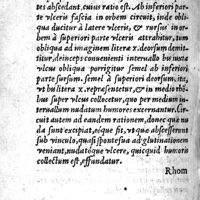 tes abscedant, cuius ratio est. Ab inferiori par
te vlceris fascia in orbem circuit, inde obli
qua ducitur à latere vlceris, & rursus in or
bem à superiori parte vlceris attrahitur, um
obliqua ad imaginem literæ x. deorsum demit
titur, deinceps conuenienti interuallo bu iuxta
vlcus obliqua porrigitur semel ab inferiori
parte sursum. semel à superiori deorsum, ita,
vt bis litera x. repræsentetur, & in medio rhõ
bus super vlcus collocetur, quo per medium in
teruallum nudatum humores excernantur. Cir
cuit autem ad eandem rationem, donec qua nu
da sunt excipiat, eique fit, vt quæ abscesserunt
sub vinculo, quasi sponte sua ad glutinationem
veniant, nudatóque vlcere, quicquid humoris
collectum est, effundatur.
Rhom